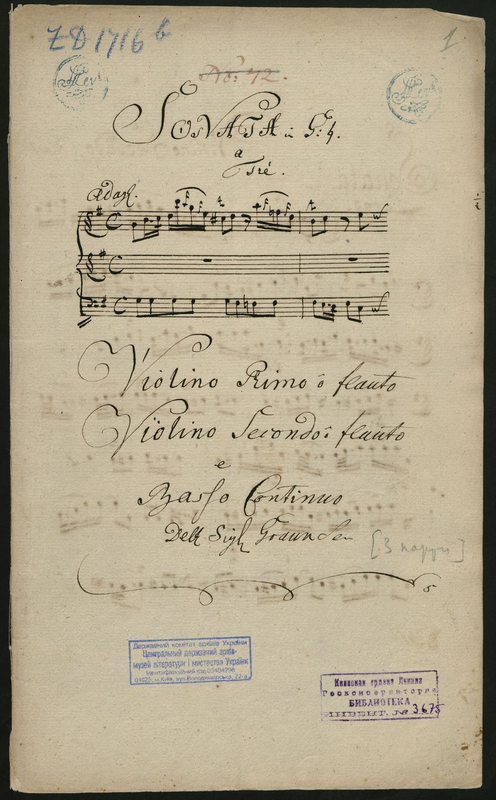 ZD 1716 b
1.
No: 42.
SONATA in G: ♮.
a
Tré.
Adag.
Violino Primo ô flauto
Violino Secondo ô flauto
e
Basso Continuo
Dell Sigl Graun
[3 партії]
Державний комітет архівів України
Центральний державний архів-
музей літератури і мистецтва України
Ідентифікаційний код
01025, м.Київ, вул.Володимирська, 22-а
Киевская ордена Ленина
Госконсерватория
БИБЛИОТЕКА
ИНВЕНТ. № 3675